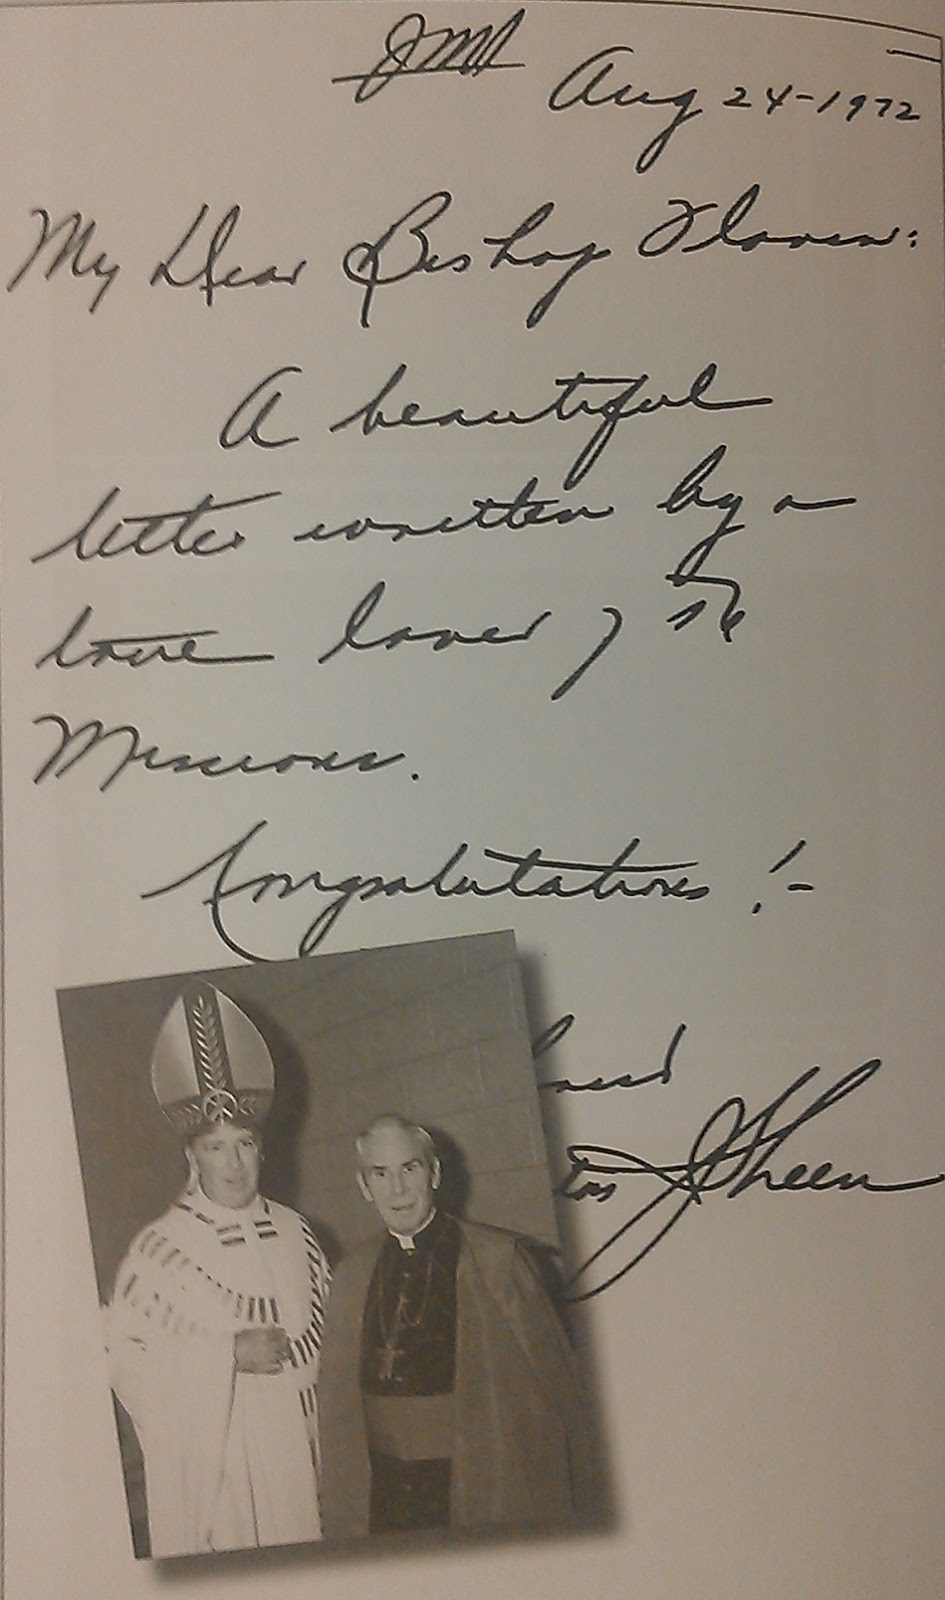 JMJ
Aug 24-1972
My Dear Bishop Flavin:
A beautiful
letter written by a
true lover of the
Missions.
Congratulations!-
Sheen